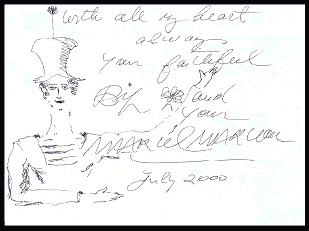 With all my heart
always
your faithful
Bip and
your
MARCEL MARCEAU
July 2000